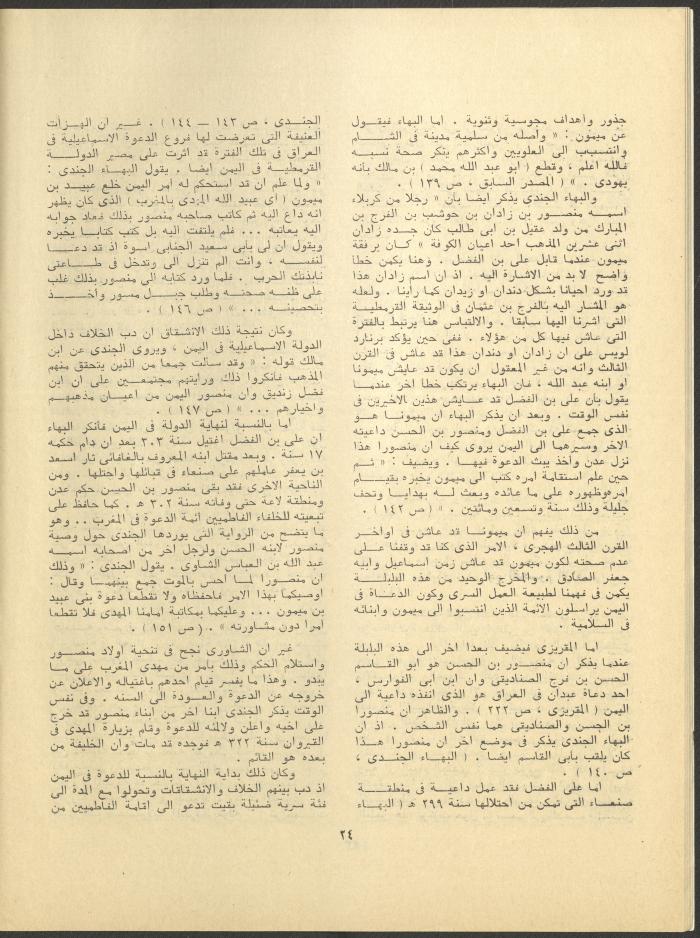 جذور وأهداف مجوسية وثنوية . أما البهاء فيقول
عن ميمون : « وأصله من سلمية مدينة في الشام
وانتسب الى العلويين وأكثرهم ينكر صحة نسبه
فالله أعلم ، وقطع ( أبو عبد الله محمد ) بن مالك بأنه
يهودي . » ( المصدر السابق ، ص ١٣٩ ) .
والبهاء الجندي يذكر أيضا بأن « رجلا من كربلاء
اسمه منصور بن زادان بن حوشب بن الفرج بن
المبارك من ولد عقيل بن أبي طالب كان جده زادان
اثنى عشرين المذهب أحد أعيان الكوفة » كان برفقة
ميمون عندما قابل علي بن الفضل . وهنا يكمن خطأ
واضح لا بد من الاشارة اليه . اذ ان اسم زادان هذا
قد ورد أحيانا بشكل دندان أو زيدان كما رأينا . ولعله
هو المشار اليه بالفرج بن عثمان في الوثيقة القرمطية
التي أشرنا اليها سابقا . والالتباس هنا يرتبط بالفترة
التي عاش فيها كل من هؤلاء . ففي حين يؤكد برنارد
لويس على ان زادان أو دندان هذا قد عاش في القرن
الثالث وأنه من غير المعقول أن يكون قد عايش ميمونا
أو ابنه عبد الله ، فان البهاء يرتكب خطأ آخر عندما
يقول بأن علي بن الفضل قد عايش هذين الأخيرين في
نفس الوقت . وبعد ان يذكر البهاء ان ميمونا هو
الذي جمع علي بن الفضل ومنصور بن الحسن داعيته
الآخر وسيرهما الى اليمن يروي كيف ان منصورا هذا
نزل عدن وأخذ يبث الدعوة فيها . ويضيف : « ثم
حين علم استقامة أمره كتب الى ميمون يخبره بقيام
أمره وظهوره على ما عائده وبعث له بهدايا وتحف
جليلة وذلك سنة وتسعين ومائتين . » ( ص ١٤٢ ) .
من ذلك يفهم ان ميمونا قد عاش في أواخر
القرن الثالث الهجري ، الأمر الذي كنا قد وقفنا على
عدم صحته لكون ميمون قد عاش زمن اسماعيل وأبيه
جعفر الصادق . والمخرج الوحيد من هذه البلبلة
يكمن في فهمنا لطبيعة العمل السري وكون الدعاة في
اليمن يراسلون الأئمة الذين انتسبوا الى ميمون وأبنائه
في السلامية .
أما المقريزي فيضيف بعدا آخر الى هذه البلبلة
عندما يذكر ان منصور بن الحسن هو أبو القاسم
الحسن بن فرج الصناديقي وان ابن أبي الفوارس ،
أحد دعاة عبدان في العراق هو الذي أنفذه داعية الى
اليمن ( المقريزي ، ص ٢٢٢ ) . والظاهر ان منصورا
بن الحسن والصناديقي هما نفس الشخص . اذ ان
البهاء الجندي يذكر في موضع آخر ان منصورا هذا
كان يلقب بأبي القاسم أيضا . ( البهاء الجندي ،
ص ١٤٠ ) .
أما علي الفضل فقد عمل داعية في منطقة
صنعاء التي تمكن من احتلالها سنة ٢٩٩ هـ ( البهاء
الجندي ، ص ١٤٣ – ١٤٤ ) . غير ان الهزات
العنيفة التي تعرضت لها فروع الدعوة الاسماعيلية في
العراق في تلك الفترة قد أثرت على مصير الدولة
القرمطية في اليمن أيضا . يقول البهاء الجندي :
« ولما علم ان قد استحكم له أمر اليمن خلع عبيد بن
ميمون ( أي عبيد الله المهدي بالمغرب ) الذي كان يظهر
انه داع اليه ثم كاتب صاحبه منصور بذلك فعاد جوابه
اليه يعاتبه ... فلم يلتفت اليه بل كتب كتابا يخبره
ويقول ان لي بأبي سعيد الجنابي أسوة اذ قد دعا
لنفسه ، وأنت الم تنزل الي وتدخل في طاعتي
نابذتك الحرب . فلما ورد كتابه الى منصور بذلك غلب
على ظنه صحته وطلب جبل مسور وأخذ
بتحصينه ... » ( ص ١٤٦ ) .
وكان نتيجة ذلك الانشقاق ان دب الخلاف داخل
الدولة الاسماعيلية في اليمن ، ويروي الجندي عن ابن
مالك قوله : « وقد سألت جمعا من الذين يتحقق منهم
المذهب فأنكروا ذلك ورأيتهم مجتمعين على ان ابن
فضل زنديق وان منصور اليمن من أعيان مذهبهم
وأخيارهم ... » ( ص ١٤٧ ) .
أما بالنسبة لنهاية الدولة في اليمن فأنكر البهاء
ان علي بن الفضل اغتيل سنة ٣٠٣ بعد ان دام حكمه
١٧ سنة . وبعد مقتل ابنه المعروف بالفافائي ثار أسعد
بن يعفر عاملهم على صنعاء في قبائلها واحتلها . ومن
الناحية الأخرى فقد بقي منصور بن الحسن حكم عدن
ومنطقة لاعة حتى وفاته سنة ٣٠٢ هـ . كما حافظ على
تبعيته للخلفاء الفاطميين أئمة الدعوة في المغرب .. وهو
ما يتضح من الرواية التي يوردها الجندي حول وصية
منصور لابنه الحسن ولرجل آخر من أصحابه اسمه
عبد الله بن العباس الشاوى . يقول الجندي : « وذلك
ان منصورا لما أحس بالموت جمع بينهما وقال :
أوصيكما بهذا الأمر فاحفظاه ولا تقطعا دعوة بني عبيد
بن ميمون ... وعليكما بمكاتبة امامنا المهدي فلا تقطعا
أمرا دون مشاورته » .. ( ص ١٥١ ) .
غير ان الشاوري نجح في تنحية أولاد منصور
واستلام الحكم وذلك بأمر من مهدي المغرب على ما
يبدو . وهذا ما يفسر قيام أحدهم باغتياله والاعلان عن
خروجه عن الدعوة والعودة الى السنه . وفي نفس
الوقت يذكر الجندي ابنا آخر من أبناء منصور قد خرج
على أخيه وأعلن ولائه للدعوة وقام بزيارة المهدي في
القيروان سنة ٣٢٢ هـ فوجده قد مات وان الخليفة من
بعده هو القائم .
وكان ذلك بداية النهاية بالنسبة للدعوة في اليمن
اذ دب بينهم الخلاف والانشقاقات وتحولوا مع المدة الى
فئة سرية ضئيلة بقيت تدعو الى اقامة الفاطميين من
٢٤